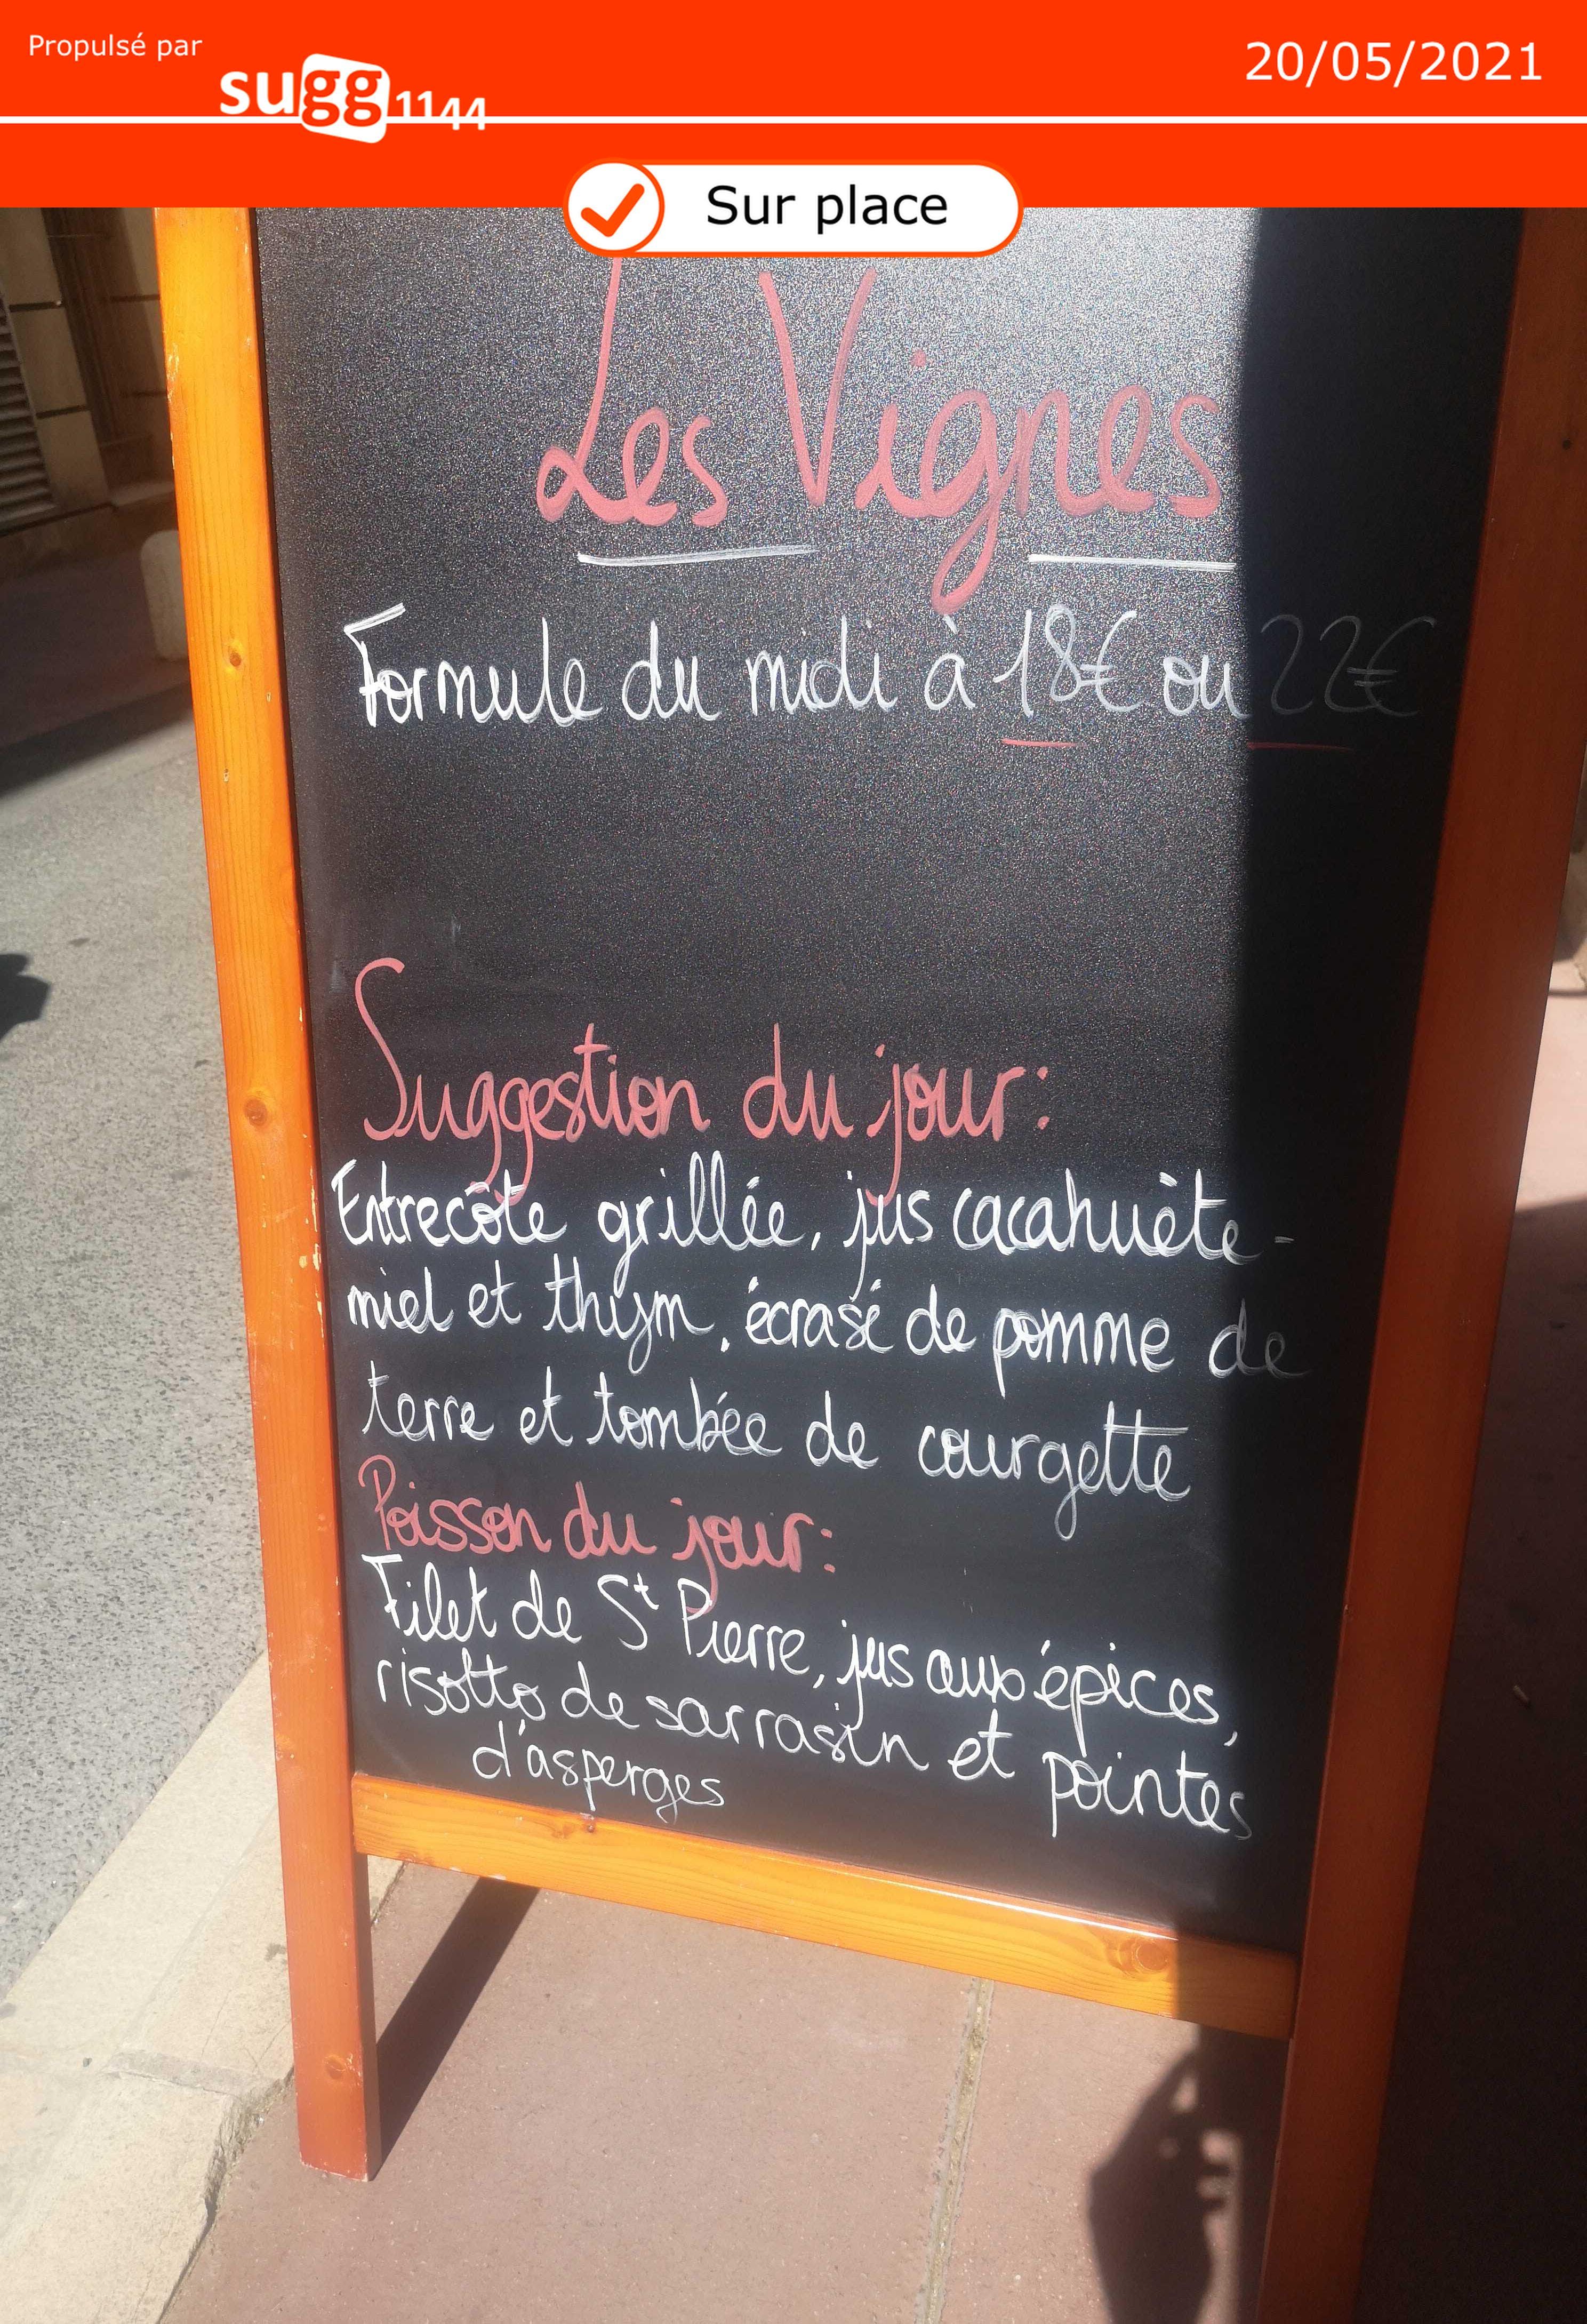 Propulsé par
sugg1144
20/05/2021
Sur place
Les Vignes
Formule du midi à 18€ ou 22€
Suggestion du jour:
Entrecôte grillée, jus cacahuète-
miel et thym, écrasé de pomme de
terre et tombée de courgette
Poisson du jour:
Filet de St Pierre, jus aux épices,
risotto de sarrasin et pointes
d'asperges